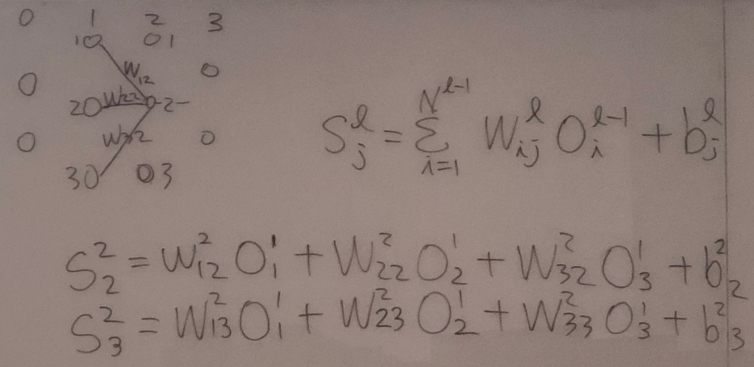 0 1 2 3
10 01
W₁₂ 0
0
20 W₂₂ 0-2-
0 W₃₂ 0
30 03
S_j^l = Σ_{i=1}^{N^{l-1}} W_{ij}^l O_i^{l-1} + b_j^l
S_2^2 = W_{12}^2 O_1^1 + W_{22}^2 O_2^1 + W_{32}^2 O_3^1 + b_2^2
S_3^2 = W_{13}^2 O_1^1 + W_{23}^2 O_2^1 + W_{33}^2 O_3^1 + b_3^2